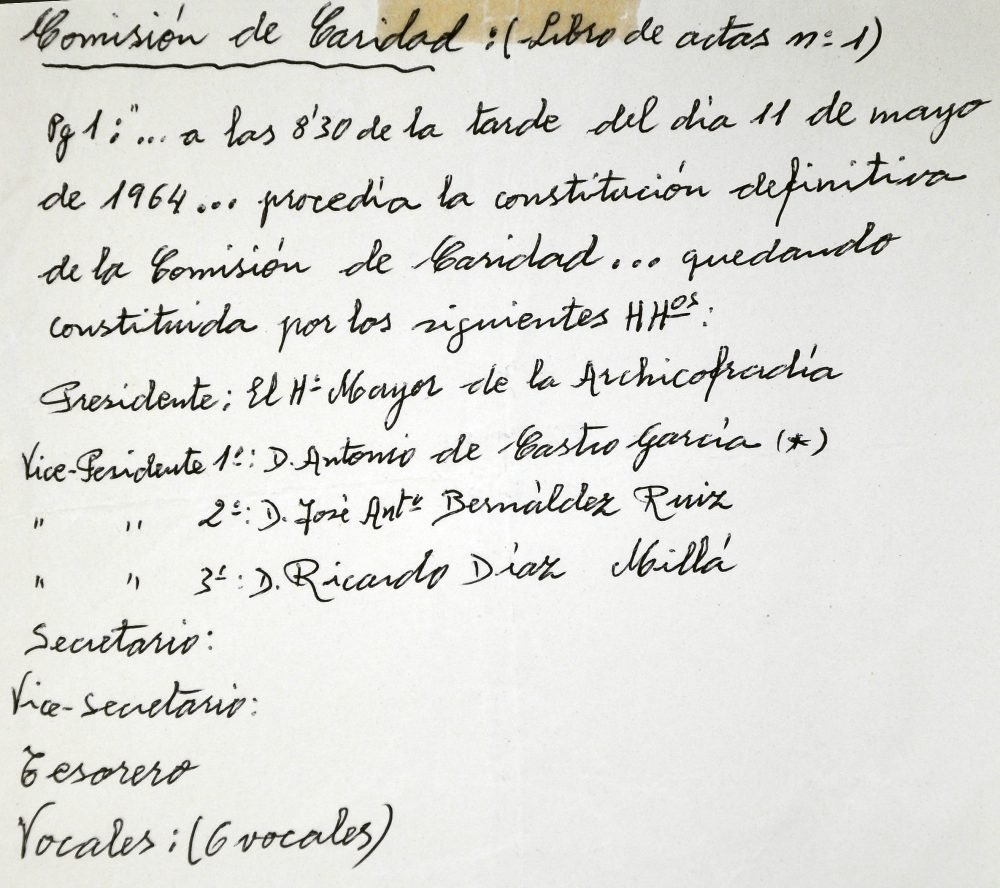 Comisión de Caridad : (Libro de actas nº 1)
Pg 1 : "... a las 8'30 de la tarde del dia 11 de mayo
de 1964... procedía la constitución definitiva
de la Comisión de Caridad... quedando
constituida por los siguientes HHos:
Presidente: El Hº Mayor de la Archicofradía
Vice-Pesidente 1º: D. Antonio de Castro García (*)
" " 2º: D. José Antº Bernáldez Ruiz
" " 3º: D. Ricardo Díaz Millá
Secretario:
Vice-Secretario:
Tesorero
Vocales : (6 vocales)